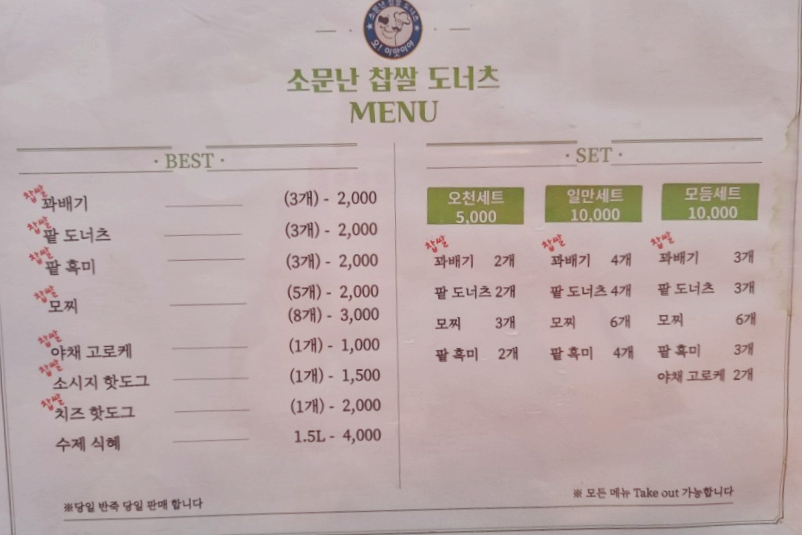 소문난 찹쌀 도너츠
오! 이맛이야
소문난 찹쌀 도너츠
MENU
· BEST ·
찹쌀 꽈배기 (3개) - 2,000
찹쌀 팥 도너츠 (3개) - 2,000
찹쌀 팥 흑미 (3개) - 2,000
찹쌀 모찌 (5개) - 2,000
(8개) - 3,000
찹쌀 야채 고로케 (1개) - 1,000
찹쌀 소시지 핫도그 (1개) - 1,500
찹쌀 치즈 핫도그 (1개) - 2,000
수제 식혜 1.5L - 4,000
※당일 반죽 당일 판매 합니다
· SET ·
오천세트
5,000
찹쌀
꽈배기 2개
팥 도너츠 2개
모찌 3개
팥 흑미 2개
일만세트
10,000
찹쌀
꽈배기 4개
팥 도너츠 4개
모찌 6개
팥 흑미 4개
모듬세트
10,000
찹쌀
꽈배기 3개
팥 도너츠 3개
모찌 6개
팥 흑미 3개
야채 고로케 2개
※ 모든 메뉴 Take out 가능합니다